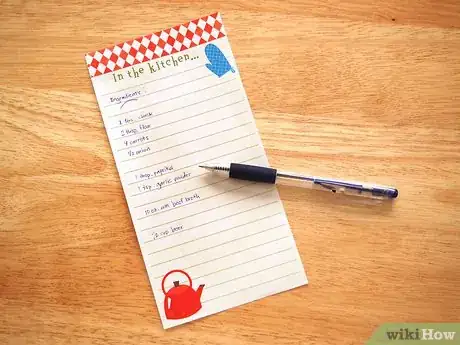 In the kitchen...
Ingredients:
2 tbsp. flour
4 carrots
1/2 onion
1 tbsp. paprika
1 tsp. garlic powder
10 oz. beef broth
1/2 cup beer
wikiHow